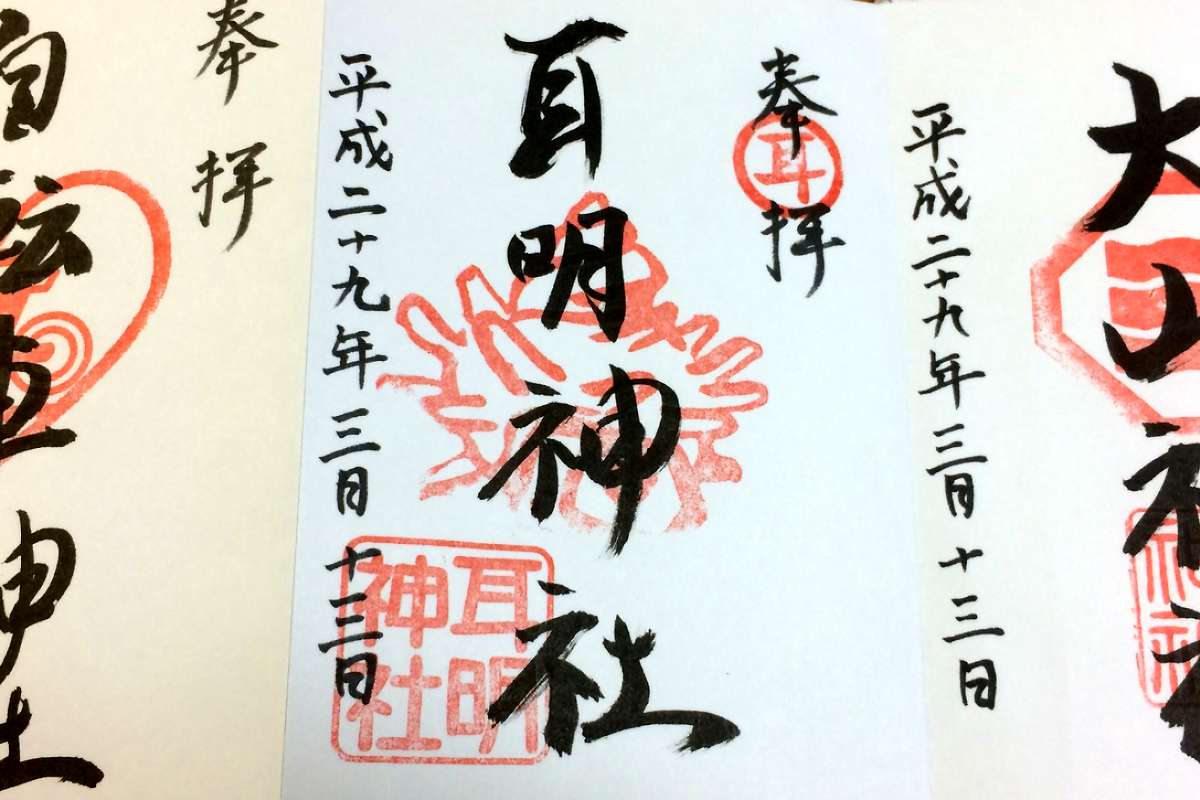 大山神社
平成二十九年三月十三日
奉拝
耳
耳明神社
耳明
神社
平成二十九年三月十三日
奉拝
自転車神社